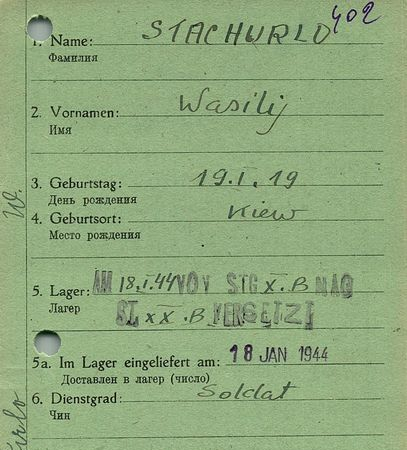 402
1. Name: STACHURLO
Фамилия
2. Vornamen: Wasilij
Имя
3. Geburtstag: 19.I.19
День рождения
4. Geburtsort: Kiew
Место рождения
5. Lager: AM 18.I.44 VOV STG X.B NAG
Лагер
ST. XX.B VERSETZT
5a. Im Lager eingeliefert am: 18 JAN 1944
Доставлен в лагер (число)
6. Dienstgrad: Soldat
Чин
W.